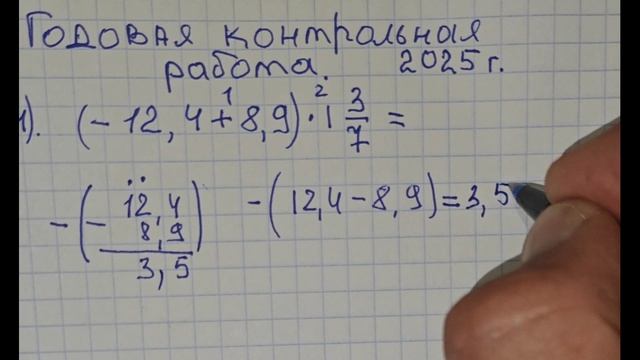 Годовая контрольная
работа. 2025 г.
1). (-12,4 + 8,9) · 1 3/7 =
1 2
-( 12,4 - 8,9 ) 3,5
-(12,4 - 8,9) = 3,5